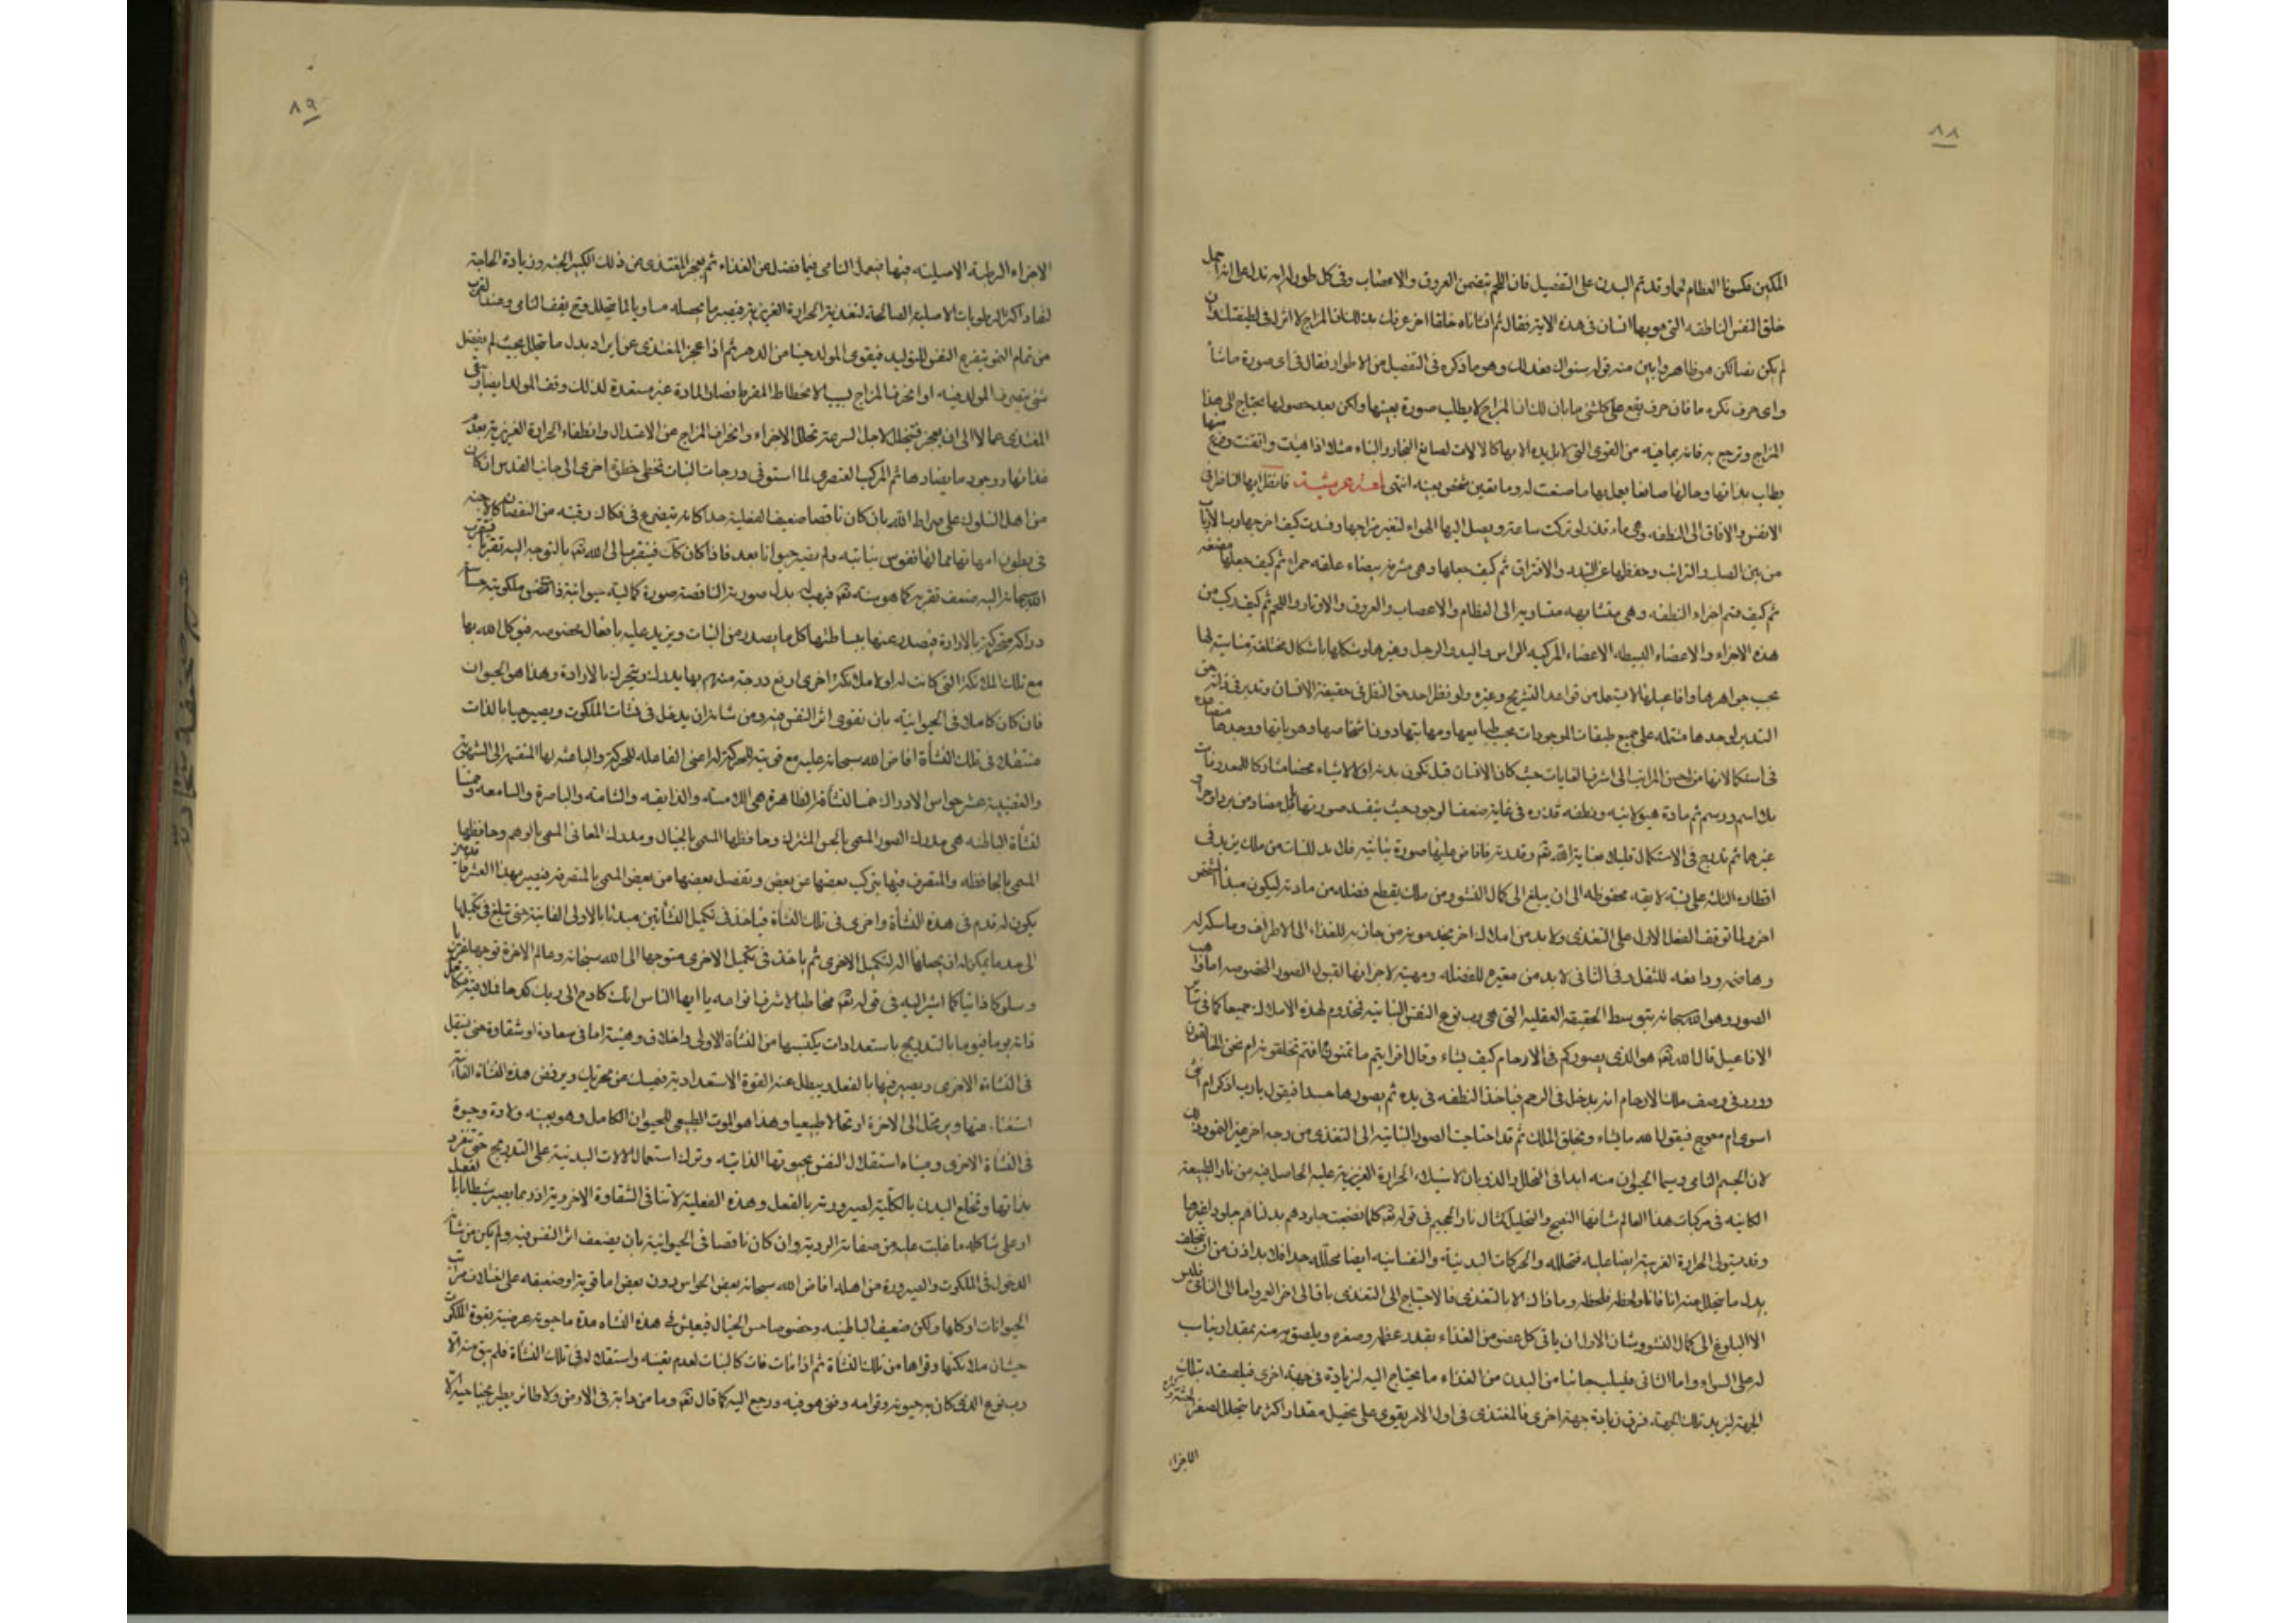 ٨٨
المكين فكسونا العظام لحما وقد تم البدن على التفصيل فان اللحم يتضمن العروق والاعصاب وفي كل طور له اية تدل على انه اجمل
خلق النفس الناطقه التي هو بها انسان في هذه الاية فقال ثم انشاناه خلقا اخر عرفك بذلك ان المزاج لا اثر له في لطيفتك وان
لم يكن نصا لكن هو ظاهر وابين منه قوله سواك فعدلك وهو ما ذكره في التفصيل من الاطوار فقال في اى صورة ما شاء
واى حرف نكره ما فان حرف يقع على كل شئ فابان لك ان المزاج لا يطلب صورة بعينها ولكن بعد حصولها يحتاج الى هذا
المزاج وترجع به فانه بما فيه من القوى التي لا يدبره الا بها كالالات لصانع النجار والبناء مثلا اذا هيئت واتقنت وفرغ منها
يطلب بذاتها وحالها صانعا يعمل بها ما صنعت له وما تعين شخص بعينه انتهى لمعة عرشية فانظر ايها الناظر في
الانفس والافاق الى النطفه وهي ماء قذر لو تركت ساعة ويصل اليها الهواء لتغير مزاجها وفسدت كيف اخرجها رب الارباب
من بين الصلب والترائب وحفظها عن التبدد والافتراق ثم كيف جعلها وهي مشرقه بيضاء علقه حمراء ثم كيف جعلها مضغه
ثم كيف قسم اجزاء النطفه وهي متشابهه متساويه الى العظام والاعصاب والعروق والاوتار واللحم ثم كيف ركب من
هذه الاجزاء والاعضاء البسيطه الاعضاء المركبه الراس واليد والرجل وغيرها وشكلها باشكال مختلفة مناسبة لها
بحسب جواهرها وافاعيلها لا يستعمل من قواعد التشريح وغيره ولو نظر احد حق النظر في حقيقة الانسان وتدبر في ذاته حق
التدبر لوجدها مشتمله على جميع طبقات الموجودات بحسب طبايعها ومهياتها دون اشخاصها وهوياتها ووجدها متصاعده
في استكمالاتها من اخس المراتب الى اشرف الغايات حيث كان الانسان قبل تكون بدنه اولا لا شياء محضا مشاركا للمعدومات
بلا اسم ورسم ثم مادة هيولانيه ونطفه قذره في غاية ضعف الوجود حيث يفسد صورتها كل مضاد من برد او حر او
غيرهما ثم تدرج في الاستكمال قليلا بعناية الله تع وقدرته فافاض عليها صورة نباتيه فلا بد للنبات من ملك يزيد في
اقطاره الثلثه على نسبة لايقه محفوظه الى ان يبلغ الى كمال النشو ومن ملك يقطع فضله من مادته ليكون مبدا لشخص
اخر ولما توقف الفعل الاول على التغذى ولا بد من املاك اخر يخدمونه من جاذبه للغذاء الى الاطراف وماسكه له
وهاضمه ودافعه للثقل وفي الثانى لا بد من مغيره للفضله ومهيئه لاجزائها لقبول الصور المخصوصه اما واهب
الصور وهو الله سبحانه بتوسط الحقيقه العقليه التي هي رب نوع النفس النباتيه فمخدوم لهذه الاملاك جميعا كما في سائر
الافاعيل قال الله تع هو الذي يصوركم في الارحام كيف يشاء وقال افرايتم ما تمنون ءانتم تخلقونه ام نحن الخالقون
وورد في وصف ملك الارحام انه يدخل في الرحم فياخذ النطفه في يده ثم يصورها جسدا فيقول يا رب اذكر ام انثى
اسوى ام معوج فيقول الله ما يشاء ويخلق الملك ثم قد احتاجت الصور النباتيه الى التغذى من وجه اخر غير النمو وذلك
لان الجسم النامى وسيما الحيوان منه ابدا في التحلل والذوبان لاستيلاء الحرارة الغريزية عليه الحاصل فيه من نار الطبيعة
الكائنه في مركبات هذا العالم شانها النضج والتحليل كشان نار الجحيم في قوله تع كلما نضجت جلودهم بدلناهم جلودا غيرها
وقد يستولى الحرارة الغريبة ايضا عليه فتحلله والحركات البدنية والنفسانيه ايضا محلله جدا فلا بد اذن من ان يتخلف
بدل ما يتحلل منه انا فانا ولحظه فلحظه وما ذاك الا بالتغذى فالاحتياج الى التغذى باق الى اخر العمر واما الى النامى فليس
الا البلوغ الى كمال النشو وشان الاول ان ياتى كل عضو من الغذاء بقدر عظمه وصغره ويلصق به منه بمقدار يناسب
له على السواء واما الثانى فيسلب جانبا من البدن من الغذاء ما يحتاج اليه لزيادة في جهة اخرى فيلصقه بتلك
الجهة ليزيد تلك الجهة فوق زيادة جهة اخرى فالمغتذى في اول الامر يقوى على تحصيل مقدار اكثر مما يتحلل لصغر الجثه وكثره
الاجزاء
٨٩
الاجزاء الرطبة الاصليه فيها فيعمل النامى فيما فضل عن الغذاء ثم يعجز المغتذى عن ذلك لكبر الجثه وزيادة الحاجة
لنفاد اكثر الرطوبات الاصلية الصالحة لتغذية الحرارة الغريزية فيصير ما يحصله مساويا لما يتحلل وح يقف النامى وعند القرب
من تمام النمو يتفرغ النفس للتوليد فيقوى المولد حينا من الدهر ثم اذا عجز المغتذى عن ايراد بدل ما يتحلل بحيث لم يفضل
شئ يتصرف المولد فيه او انحرف المزاج بسبب الانحطاط المفرط فصار المادة غير مستعدة لذلك وقف المولد ايضا وبقى
المغتذى عمالا الى ان يعجز فيتحلل لاجل السرعة تحلل الاجزاء وانحراف المزاج عن الاعتدال وانطفاء الحرارة الغريزية بعدم
غذائها ووجود ما يضادها ثم المركب العنصرى لما استوفى درجات النبات تخطى خطوة اخرى الى جانب القدس ان كان
من اهل السلوك على صراط الله بان كان ناقصا ضعيف الفعلية جدا كانه يتضرع في فكاك رقبته من النقصان كالاجنه
في بطون امهاتها فما لها نفوس نباتيه ولم يصر حيوانا بعد فاذا كان كك فيتقرب الى الله تع بالتوجه اليه تقربا فيتقرب
الله سبحانه اليه ضعف تقربه كما هو سنته تع فيهب له بدل صورية الناقصة صورة كمالية حيوانية ذات نفس ملكوتية حساسه
دراكه متحركة بالارادة فيصدر عنها ببساطتها كل ما يصدر من النبات ويزيد عليه بافعال مخصوصه فيوكل الله بها
مع تلك الملائكة التي كانت له اولا ملائكة اخرى ارفع درجة منهم بها يدرك ويتحرك بالارادة وهذا هو الحيوان
فان كان كاملا في الحيوانية بان تقوى اثر النفس فيه ومن شانه ان يدخل في نشات الملكوت ويصير حيا بالذات
مستقلا في تلك النشأة افاض الله سبحانه عليه مع قوتيه المحركة له اعنى الفاعله للحركة والباعثه لها المنقسمه الى الشهويه
والغضبية عشر حواس الادراك خمسا للنشأة الظاهرة هي اللامسه والذايقه والشامه والباصرة والسامعه وخمسا
لنشأة الباطنه هي مدرك الصور المسمى بالحس المشترك وحافظها المسمى بالخيال ومدرك المعانى المسمى بالوهم وحافظها
المسمى بالحافظه والمتصرف فيها بتركيب بعضها عن بعض وتفصل بعضها من بعض المسمى بالمتصرفه فيصير بهذا العشر قدمين
يكون له قدم في هذه النشأة واخرى في تلك النشأة فياخذ في تكميل النشأتين مبتدئا بالاولى الفانية حتى تبلغ في تكميلها
الى حد ما يمكن له ان يجعلها الة لتكميل الاخرى ثم ياخذ في تكميل الاخرى متوجها الى الله سبحانه وعالم الاخرة توجها غريزيا
وسلوكا ذاتيا كما اشير اليه في قوله تع مخاطبا لاشرف انواعه يا ايها الناس انك كادح الى ربك كدحا فملاقيه فتكامل
ذاته يوما فيوما بالتدريج باستعدادات يكتسبها من النشأة الاولى واخلاق وهيئة اما في سعادة او شقاوة حتى ينتقل
في النشاة الاخرى ويصير فيها بالفعل ويبطل عنه القوة الاستعدادية فيمسك عن تحريك ويرفض هذه النشاة الفانيه
استغناء عنها ويرتحل الى الاخرة ارتحالا طبيعيا وهذا هو الموت الطبيعى للحيوان الكامل وهو بعينه ولادة وحيوة
في النشأة الاخرى ومبناه استقلال النفس بحيوتها الذاتيه وترك استعمال الالات البدنية على التدريج حتى تنفرد
بذاتها وتخلع البدن بالكلية لصيرورته بالفعل وهذه الفعلية لا تنافى الشقاوة الاخروية اذ ربما يصير شيطانا بالفعل
او على شاكله ما غلبت عليه من صفاته الردية وان كان ناقصا في الحيوانية بان يضعف اثر النفس فيه ولم يكن من شانه
الدخول في الملكوت والصيرورة من اهله افاض الله سبحانه بعض الحواس دون بعض اما قوية او ضعيفه على اختلاف مراتب
الحيوانات او كلها ولكن ضعيف الباطنيه وخصوصا حس الخيال فيعيش في هذه النشاه مدة ما حيوة عرضية بقوة الملكوت
ملائكتها وقواها من تلك النشأة ثم اذا مات فات كالنبات لعدم نفسه واستقلاله في تلك النشأة فلم يبق منه الا
رب نوع الذي كان به حيوته وقوامه وفنى هو فيه ورجع اليه كما قال تع وما من دابة في الارض ولا طائر يطير بجناحيه الا